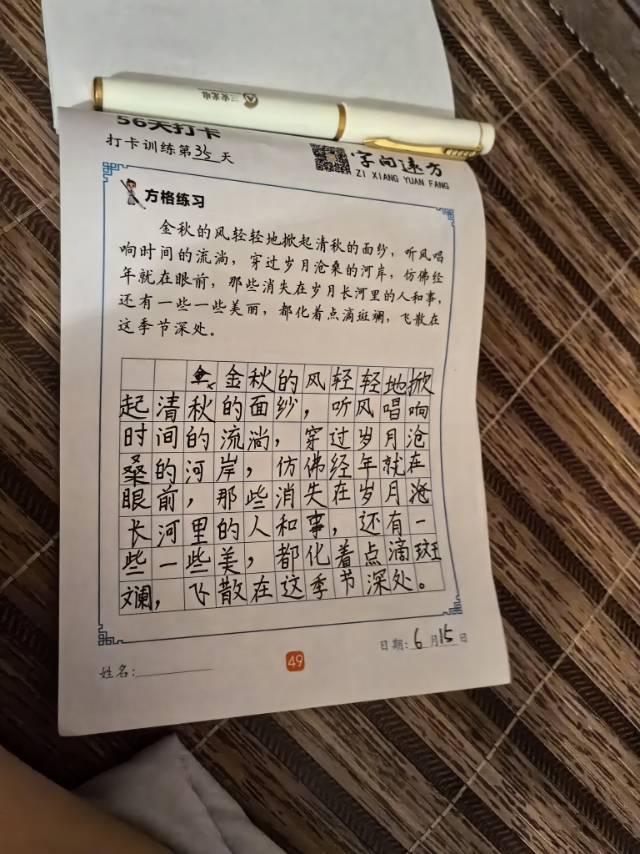 56天打卡
打卡训练第35天
字向远方
ZI XIANG YUAN FANG
方格练习
金秋的风轻轻地掀起清秋的面纱，听风唱
响时间的流淌，穿过岁月沧桑的河岸，仿佛经
年就在眼前，那些消失在岁月长河里的人和事，
还有一些一些美丽，都化着点滴斑斓，飞散在
这季节深处。
金秋的风轻轻地掀
起清秋的面纱，听风唱响
时间的流淌，穿过岁月沧
桑的河岸，仿佛经年就在
眼前，那些消失在岁月沧
长河里的人和事，还有一
些一些美，都化着点滴斑
斓，飞散在这季节深处。
日期：6月15日
姓名：
49